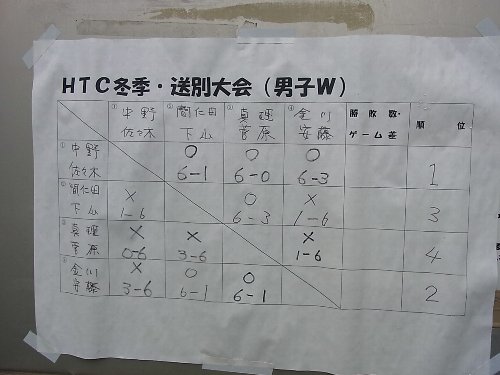 HTC冬季・送別大会（男子W）
① 中野 佐々木 ② 間仁田 下山 ③ 真理 菅原 ④ 金川 安藤 勝敗数・ゲーム差 順位
① 中野 佐々木 ○ 6-1 ○ 6-0 ○ 6-3 1
② 間仁田 下山 × 1-6 ○ 6-3 × 1-6 3
③ 真理 菅原 × 0-6 × 3-6 × 1-6 4
④ 金川 安藤 × 3-6 ○ 6-1 ○ 6-1 2